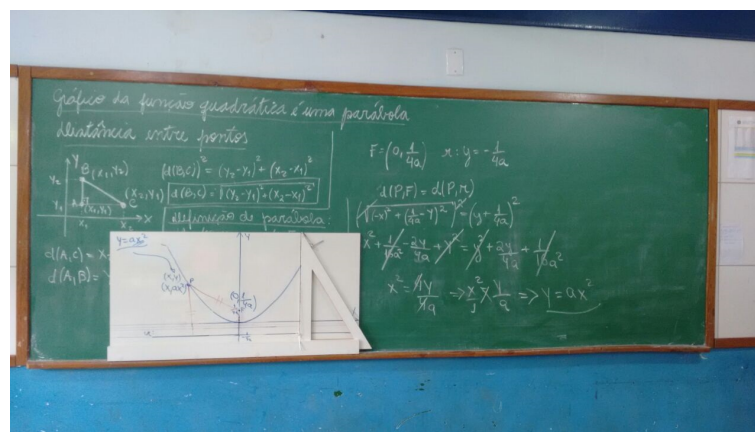 Gráfico da função quadrática é uma parábola
distância entre pontos
y
B(x₁,y₂)
y₂
(x₂,y₁)
y₁
A
(x₁,y₁)
C
x₁
x
(d(B,C))² = (y₂-y₁)² + (x₂-x₁)²
d(B,C) = √(y₂-y₁)² + (x₂-x₁)²
definição de parábola:
d(A,C) = x
d(A,B) =
y=ax²
y
P
F=(0, 1/4a) r: y = -1/4a
d(P,F) = d(P,r)
x² + 1/16a² - 2y/4a + y² = y² + 2y/4a + 1/16a²
x² = 4y/4a => x²/1 = y/a => y = ax²